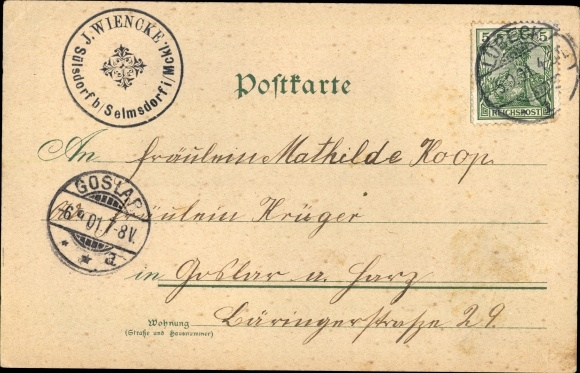 J. WIENCKE,
Sülsdorf b/Selmsdorf i/Mckl.
5 5
REICHSPOST
LÜBECK
Postkarte
An Fräulein Mathilde Koop
GOSLAR
6 01.7-8V.
Fräulein Krüger
in Goslar a. Harz
Wohnung
(Straße und Hausnummer)
Bäringerstraße 29.